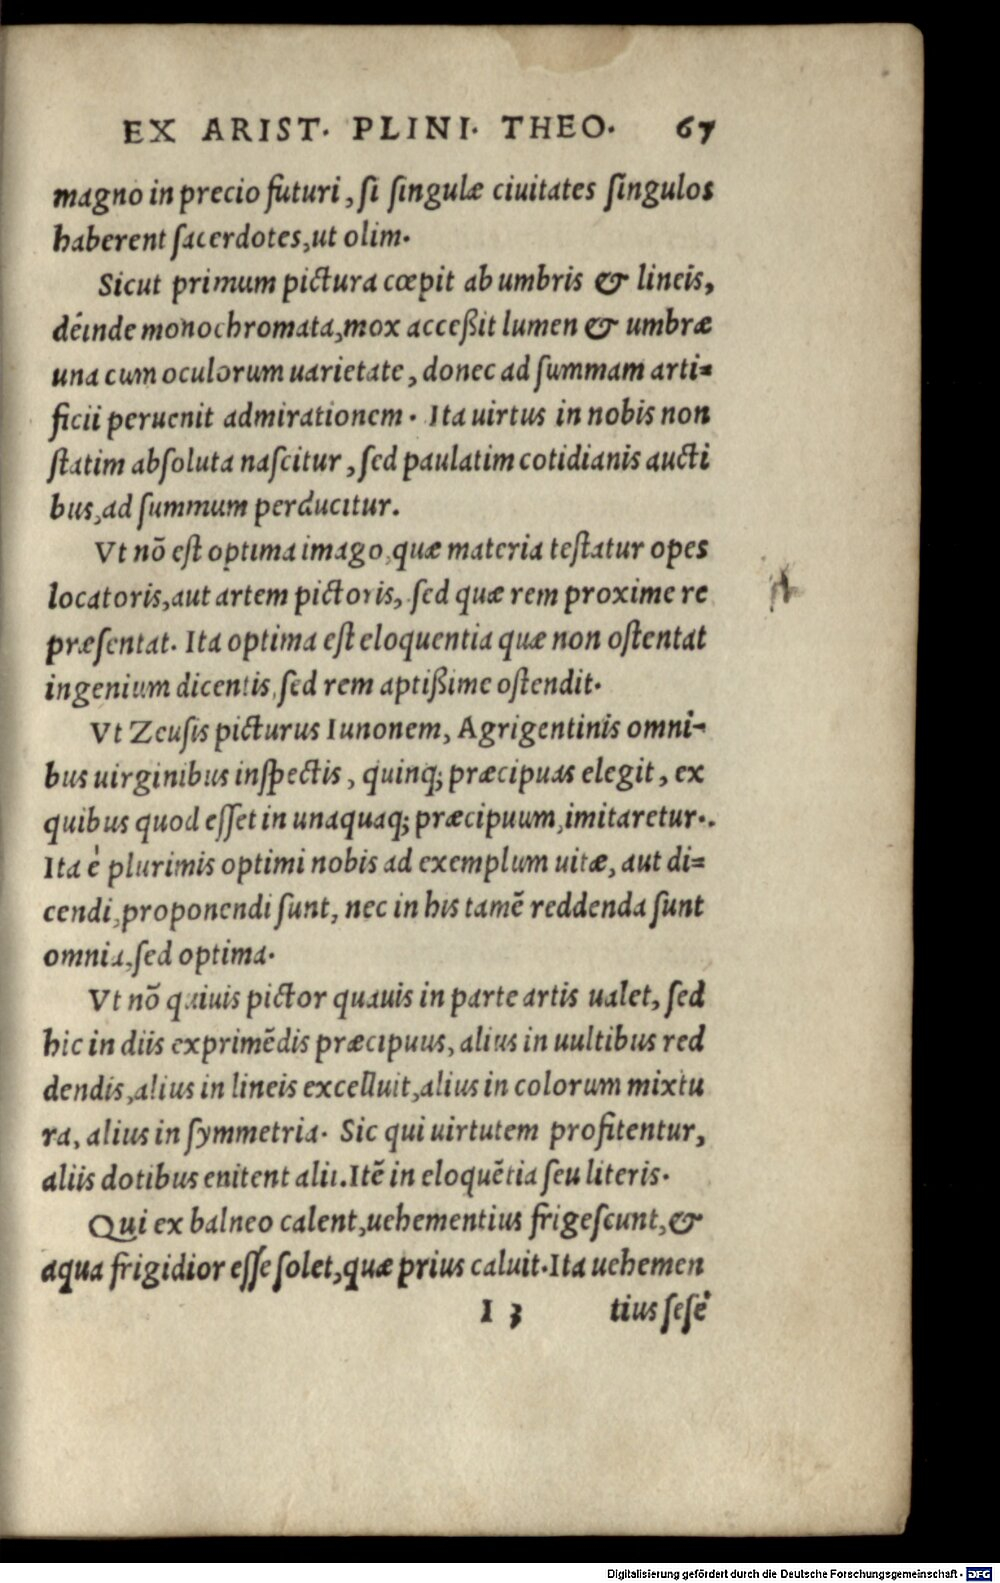 EX ARIST. PLINI. THEO. 67
magno in precio futuri, si singulæ ciuitates singulos
haberent sacerdotes, ut olim.
Sicut primum pictura cœpit ab umbris & lineis,
déinde monochromata, mox acceßit lumen & umbræ
una cum oculorum uarietate, donec ad summam arti=
ficii peruenit admirationem. Ita uirtus in nobis non
statim absoluta nascitur, sed paulatim cotidianis aucti
bus, ad summum perducitur.
Vt nō est optima imago, quæ materia testatur opes
locatoris, aut artem pictoris, sed quæ rem proxime re
præsentat. Ita optima est eloquentia quæ non ostentat
ingenium dicentis, sed rem aptißime ostendit.
Vt Zeusis picturus Iunonem, Agrigentinis omni-
bus uirginibus inspectis, quinq; præcipuas elegit, ex
quibus quod esset in unaquaq; præcipuum, imitaretur..
Ita è plurimis optimi nobis ad exemplum uitæ, aut di=
cendi, proponendi sunt, nec in his tamē reddenda sunt
omnia, sed optima.
Vt nō quiuis pictor quauis in parte artis ualet, sed
hic in diis exprimēdis præcipuus, alius in uultibus red
dendis, alius in lineis excelluit, alius in colorum mixtu
ra, alius in symmetria. Sic qui uirtutem profitentur,
aliis dotibus enitent alii. Itē in eloquētia seu literis.
Qui ex balneo calent, uehementius frigescunt, &
aqua frigidior esse solet, quæ prius caluit. Ita uehemen
I 3 tius sese
Digitalisierung gefördert durch die Deutsche Forschungsgemeinschaft - DFG